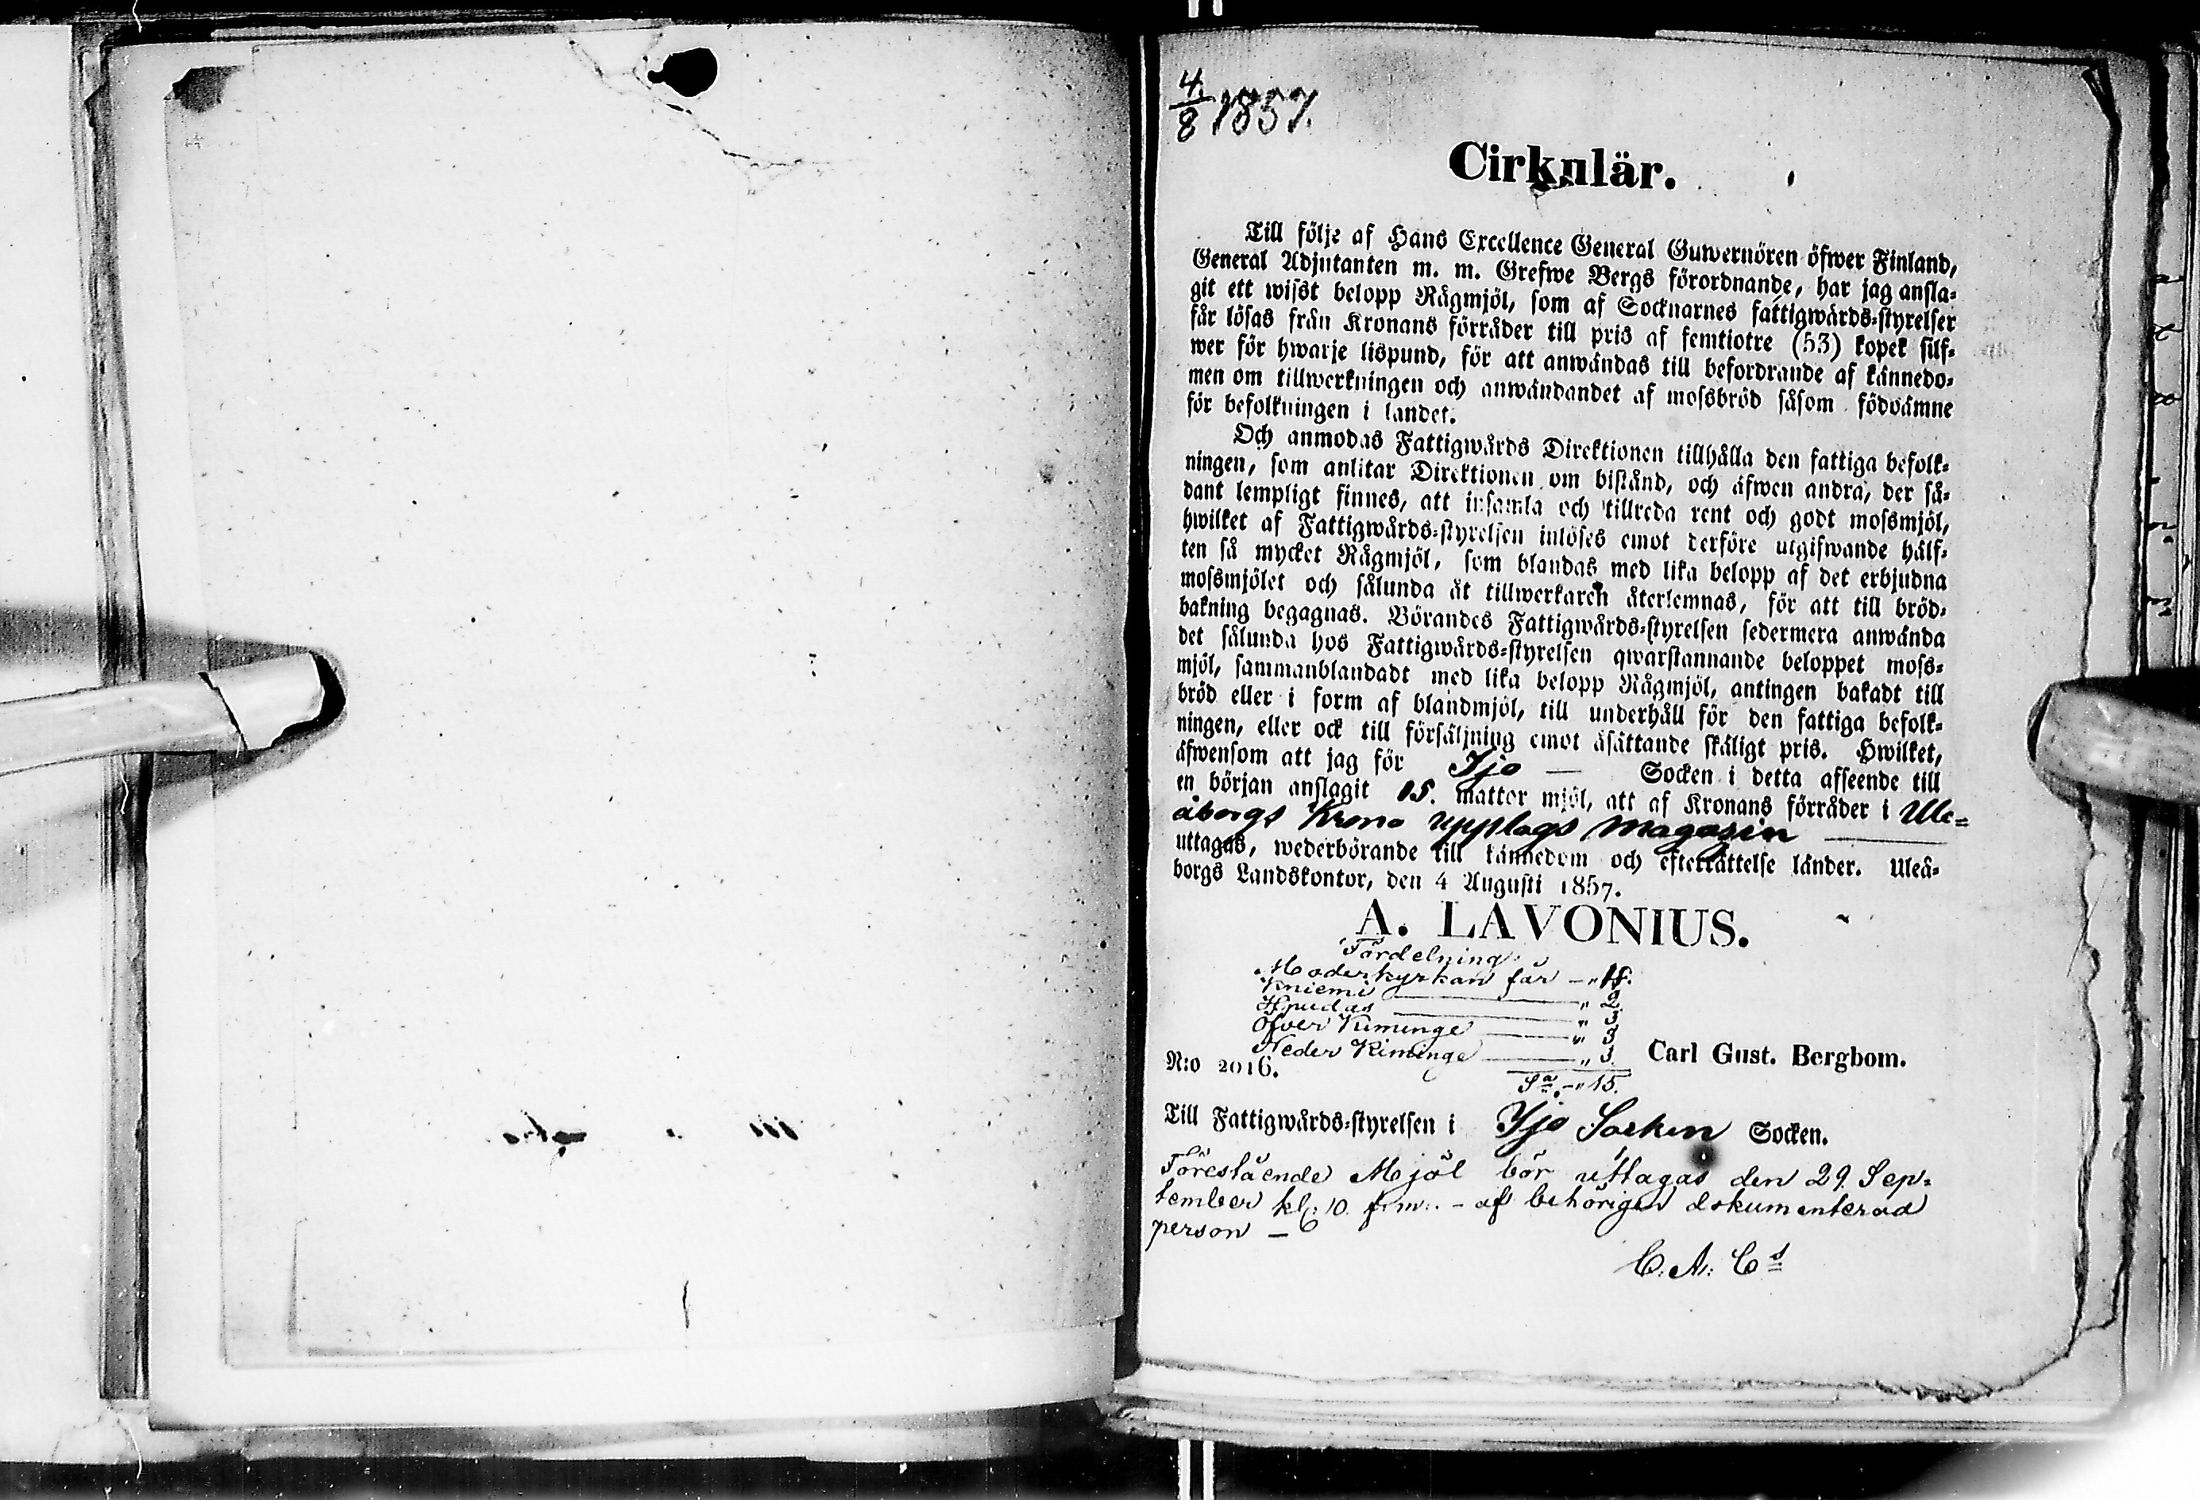 4/8 1857.
Cirkulär.
Till följe af Hans Excellence General Guwernören öfwer Finland,
General Adjutanten m. m. Grefwe Bergs förordnande, har jag ansla-
git ett wisst belopp Rågmjöl, som af Socknarnes fattigwårds-styrelser
får lösas från Kronans förråder till pris af femtiotre (53) kopek silf-
wer för hwarje lispund, för att anwändas till befordrande af kännedo-
men om tillwerkningen och anwändandet af mossbröd såsom födoämne
för befolkningen i landet.
Och anmodas Fattigwårds Direktionen tillhålla den fattiga befolk-
ningen, som anlitar Direktionen om bistånd, och äfwen andra, der så-
dant lempligt finnes, att insamla och tillreda rent och godt mossmjöl,
hwilket af Fattigwårds-styrelsen inlöses emot derföre utgifwande hälf-
ten så mycket Rågmjöl, som blandas med lika belopp af det erbjudna
mossmjölet och sålunda åt tillwerkaren återlemnas, för att till bröd-
bakning begagnas. Börandes Fattigwårds-styrelsen sedermera anwända
det sålunda hos Fattigwårds-styrelsen qwarstannande beloppet moss-
mjöl, sammanblandadt med lika belopp Rågmjöl, antingen bakadt till
bröd eller i form af blandmjöl, till underhåll för den fattiga befolk-
ningen, eller ock till försäljning emot åsättande skäligt pris. Hwilket,
äfwensom att jag för Ijo — Socken i detta afseende till
en början anslagit 15. mattor mjöl, att af Kronans förråder i Ule=
åborgs Krono upplags magasin —
uttagas, wederbörande till kännedom och efterrättelse länder. Uleå-
borgs Landskontor, den 4 Augusti 1857.
A. LAVONIUS.
Fördelning:
Moderkyrkan får — „ 4.
Kniemi — „ 2
Hpudas — „ 3
Öfver Kiminge — „ 3
Neder Kiminge — „ 3.
Carl Gust. Bergbom.
N:o 2016.
Sa — „ 15.
Till Fattigwårds-styrelsen i Ijo Socken Socken.
Förestående Mjöl bör uttagas den 29. Sep=
tember kl: 10. f:m:. – af behörigen dokumenterad
person —
C. A: Cd